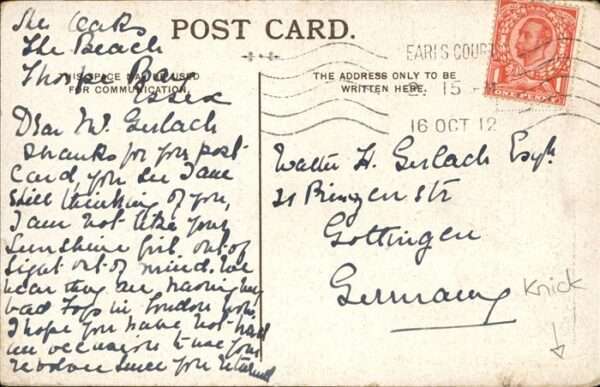 The Oaks
The Beach
Thorpe Bay
Essex
POST CARD.
THIS SPACE MAY BE USED
FOR COMMUNICATION.
THE ADDRESS ONLY TO BE
WRITTEN HERE.
EARLS COURT
15
16 OCT 12
ONE PENNY
Dear Mr. Gerlach
Thanks for your post
card, you see I am
still thinking of you,
I am not like your
Sunshine girl out of
sight out of mind. We
hear they are having very
bad Fogs in London now.
I hope you have not had
an occasion to use your
revolver since you returned
Walter H. Gerlach Esq
21 Str
Gottingen
Germany
Knick